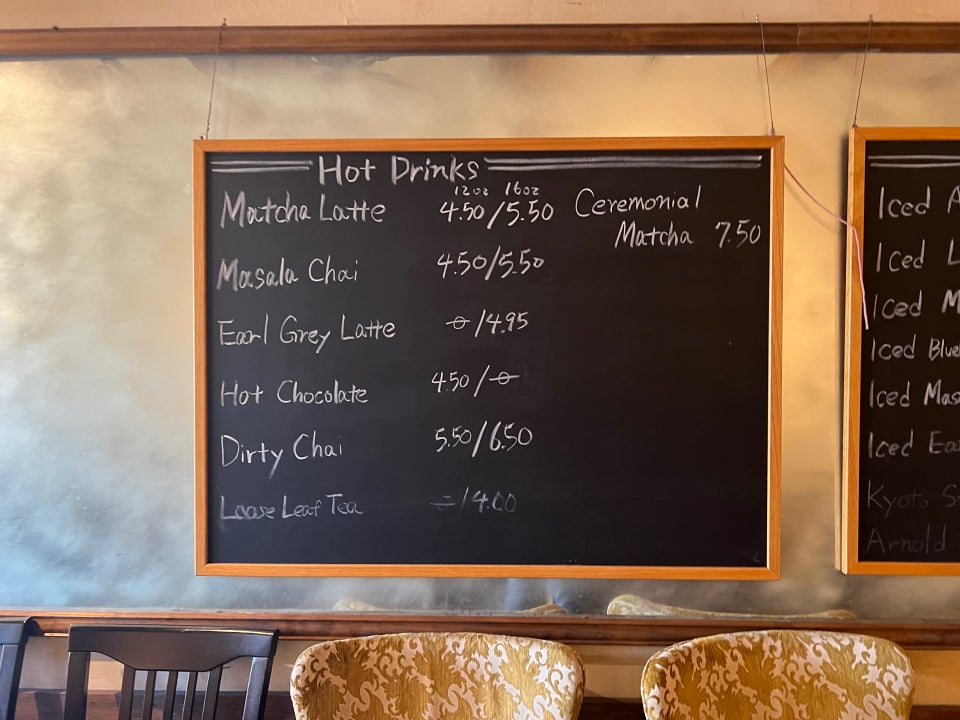 Hot Drinks
12oz 16oz
Matcha Latte 4.50/5.50
Masala Chai 4.50/5.50
Earl Grey Latte ⊖/4.95
Hot Chocolate 4.50/⊖
Dirty Chai 5.50/6.50
Loose Leaf Tea ⊖/4.00
Ceremonial
Matcha 7.50
Iced
Iced
Iced
Iced
Iced
Iced
Kyoto
Arnold